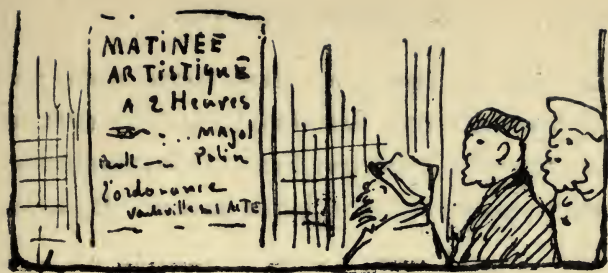 MATINÉE
ARTISTIQUE
A 2 Heures
Mayol
Polin
l'ordonnance
vaudeville en 1 ACTE